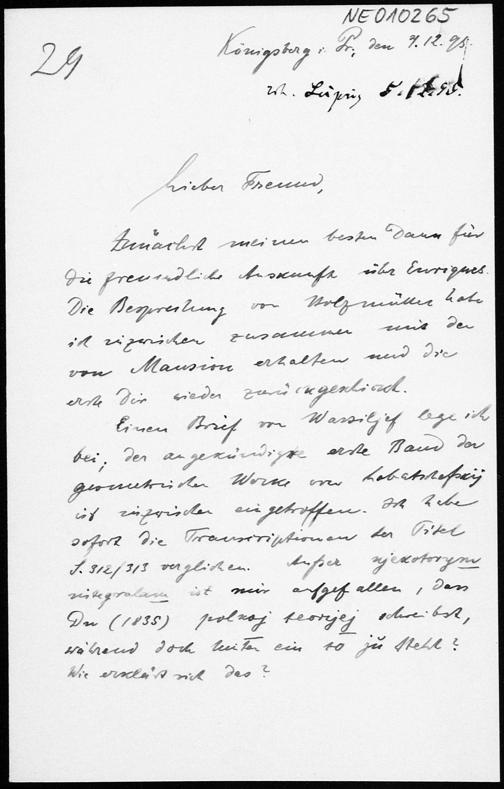 NE010265
29
Königsberg i. Pr., den 9.12.98.
Leipzig 5.12.98.
Lieber Freund,
Zunächst meinen besten Dank für
die freundliche Auskunft über Enriques.
Die Besprechung von Holzmüller habe
ich inzwischen zusammen mit der
von Mansion erhalten und die
erste Dir wieder zurückgeschickt.
Einen Brief von Wassiljef lege ich
bei; der angekündigte erste Band der
geometrischen Werke von Lobatschefskij
ist inzwischen eingetroffen. Ich habe
sofort die Transcriptionen der Titel
S. 312/313 verglichen. Außer njekotorym
integralam ist mir aufgefallen, dass
Du (1835) polnoj teorijej schreibst,
während doch hinten ein ю zu steht?
Wie erklärt sich das?